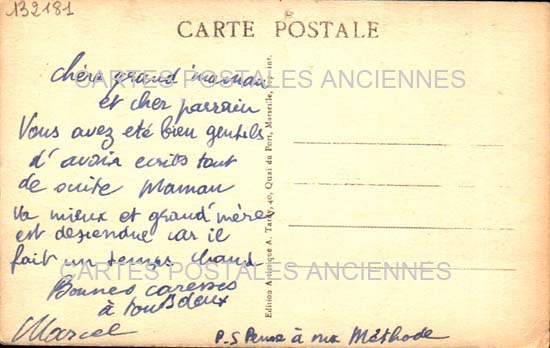 132181
CARTE POSTALE
chère grand'maman
et cher parrain
Vous avez eté bien gentils
d'avoir ecrits tout
de suite Maman
va mieux et grand'mère
est descendue car il
fait un temps chaud
Bonnes caresses
à tous deux
Marcel
P.S Pense à ma Méthode
Edition Artistique A. Tardy, 40, Quai du Port, Marseille,
CARTES POSTALES ANCIENNES
CARTES POSTALES ANCIENNES